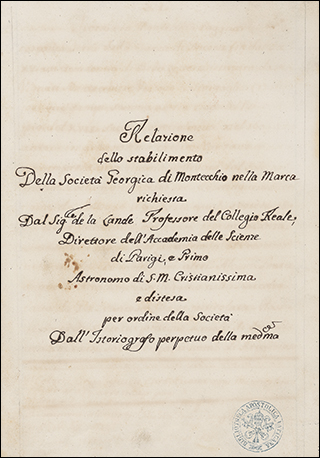 Relazione
dello stabilimento
Della Società Georgica di Montecchio nella Marca
richiesta
Dal Sig.re de la Lande Professore del Collegio Reale,
Direttore dell'Accademia delle Scienze
di Parigi, e Primo
Astronomo di S. M. Cristianissima
e distesa
per ordine della Società
Dall'Istoriografo perpetuo della medma
BIBLIOTHECA APOSTOLICA VATICANA